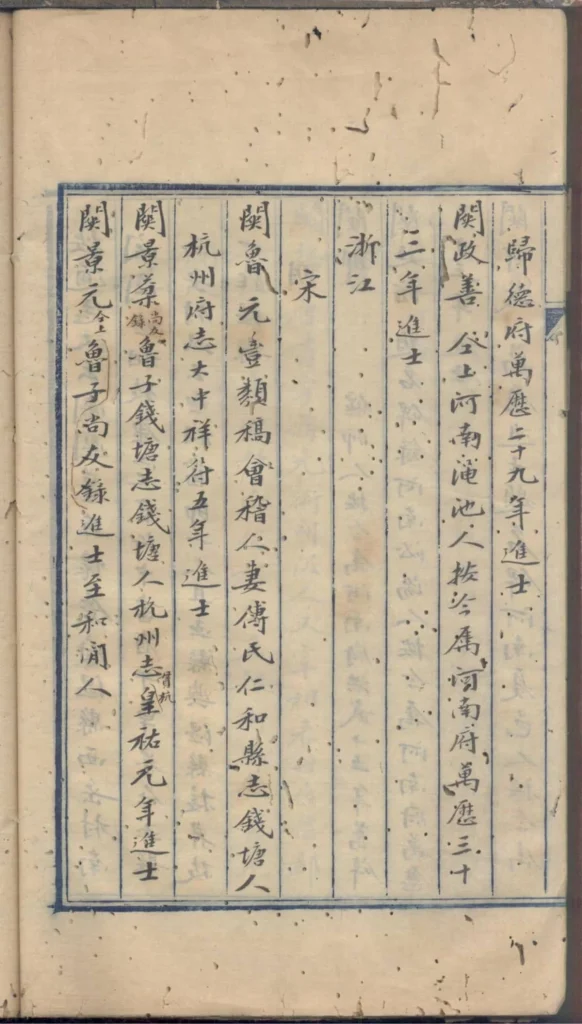 歸德府萬歷二十九年進士
闕政善 仝上河南澠池人按今屬河南府萬歷三十
三年進士
浙江
宋
闕魯 元豐類稿會稽人妻傅氏仁和縣志錢塘人
杭州府志大中祥符五年進士
闕景棻尚友錄魯子錢塘志錢塘人杭州志皇祐元年進士
闕景元仝上魯子尚友錄進士至和間人